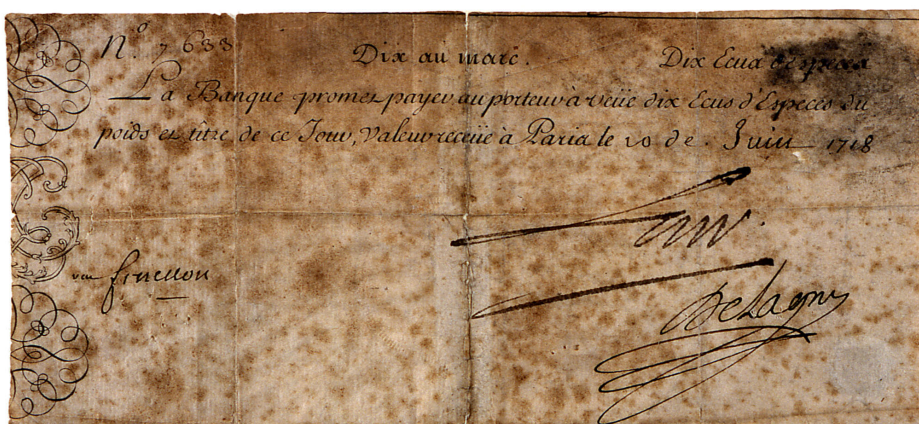 N.º 7633 Dix au marc. Dix Ecus d'Especes
La Banque promet payer au porteur à veüe dix Ecus d'Especes du
poids et tître de ce Jour, Valeur receüe à Paris le 20 de. Juin 1718
veu fenellon
DeLagny